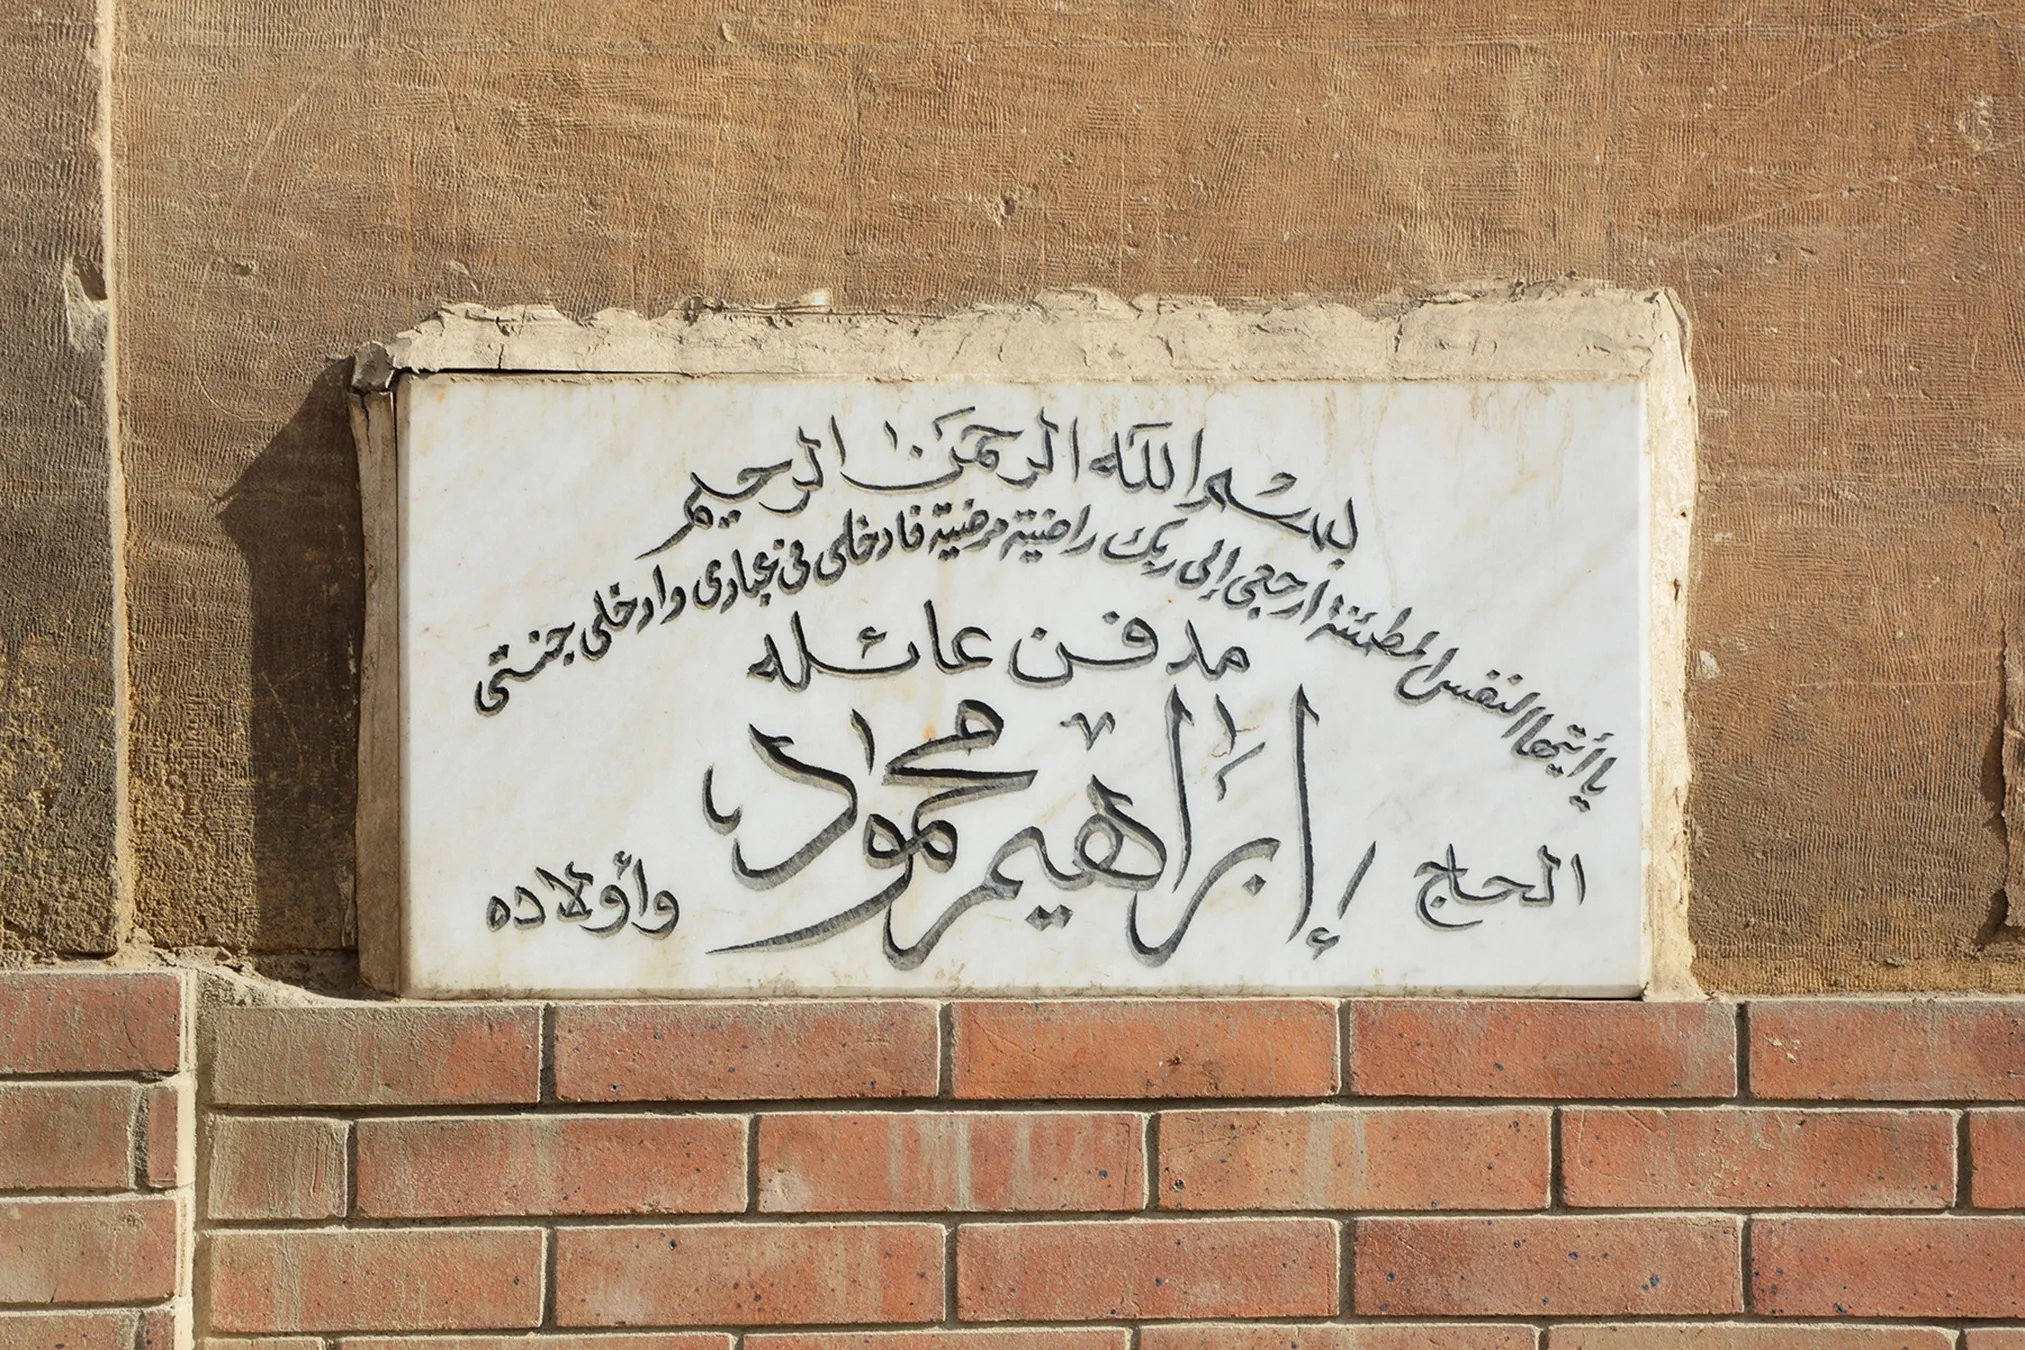 بسم الله الرحمن الرحيم
يا أيتها النفس المطمئنة ارجعى إلى ربك راضية مرضية فادخلى فى عبادى وادخلى جنتى
مدفن عائله
الحاج إبراهيم محمود وأولاده